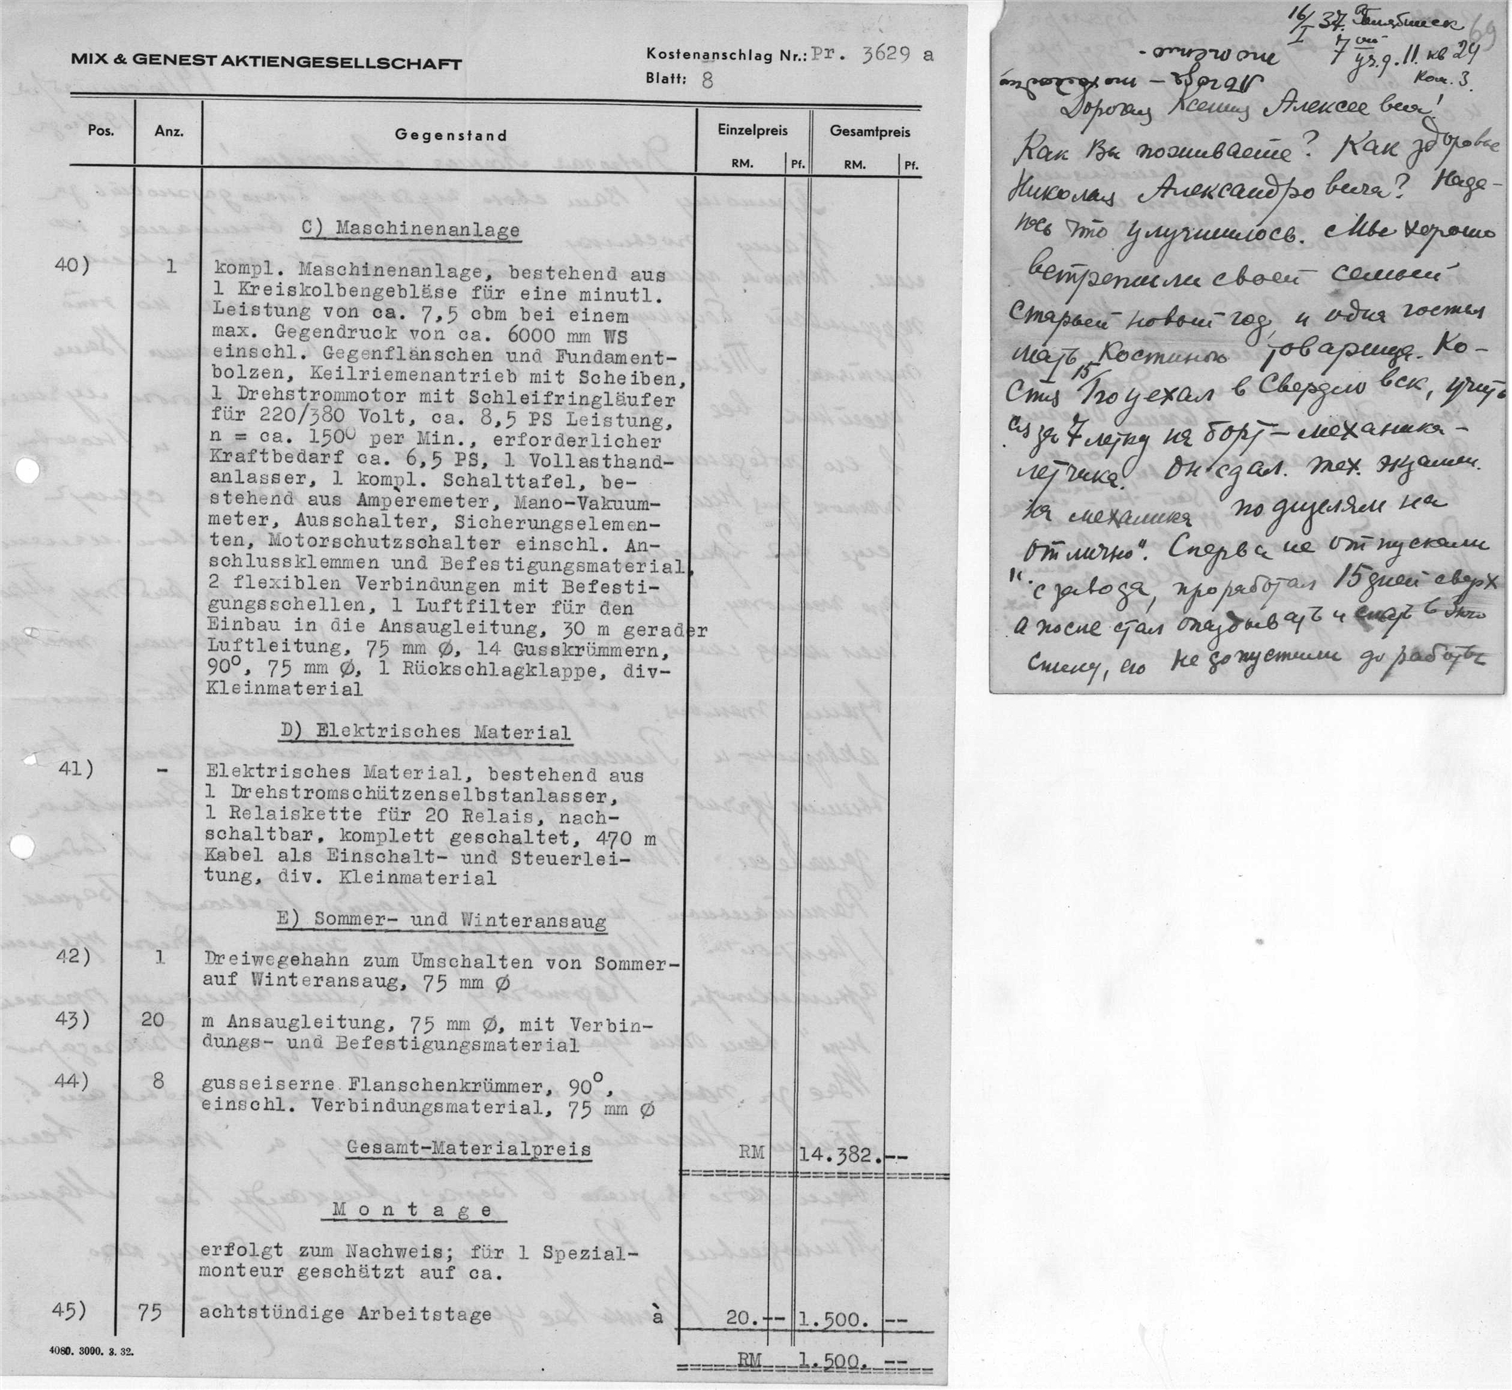 MIX & GENEST AKTIENGESELLSCHAFT
Kostenanschlag Nr.: Pr. 3629 a
Blatt: 8
Pos. Anz. Gegenstand Einzelpreis Gesamtpreis
RM. Pf. RM. Pf.
C) Maschinenanlage
40) 1 kompl. Maschinenanlage, bestehend aus
1 Kreiskolbengebläse für eine minutl.
Leistung von ca. 7,5 cbm bei einem
max. Gegendruck von ca. 6000 mm WS
einschl. Gegenflänschen und Fundament-
bolzen, Keilriemenantrieb mit Scheiben,
1 Drehstrommotor mit Schleifringläufer
für 220/380 Volt, ca. 8,5 PS Leistung,
n = ca. 1500 per Min., erforderlicher
Kraftbedarf ca. 6,5 PS, 1 Vollasthand-
anlasser, 1 kompl. Schalttafel, be-
stehend aus Ampèremeter, Mano-Vakuum-
meter, Ausschalter, Sicherungselemen-
ten, Motorschutzschalter einschl. An-
schlussklemmen und Befestigungsmaterial,
2 flexiblen Verbindungen mit Befesti-
gungsschellen, 1 Luftfilter für den
Einbau in die Ansaugleitung, 30 m gerader
Luftleitung, 75 mm Ø, 14 Gusskrümmern,
90°, 75 mm Ø, 1 Rückschlagklappe, div-
Kleinmaterial
D) Elektrisches Material
41) - Elektrisches Material, bestehend aus
1 Drehstromschützenselbstanlasser,
1 Relaiskette für 20 Relais, nach-
schaltbar, komplett geschaltet, 470 m
Kabel als Einschalt- und Steuerlei-
tung, div. Kleinmaterial
E) Sommer- und Winteransaug
42) 1 Dreiwegehahn zum Umschalten von Sommer-
auf Winteransaug, 75 mm Ø
43) 20 m Ansaugleitung, 75 mm Ø, mit Verbin-
dungs- und Befestigungsmaterial
44) 8 gusseiserne Flanschenkrümmer, 90°,
einschl. Verbindungsmaterial, 75 mm Ø
Gesamt-Materialpreis RM 14.382.--
Montage
erfolgt zum Nachweis; für 1 Spezial-
monteur geschätzt auf ca.
45) 75 achtstündige Arbeitstage à 20.-- 1.500.--
RM 1.500.--
4080. 3000. 3. 32.
16/I 37. Челябинск
69
7 уч. д. 11. кв 24
Ком. 3.
Дорогая Ксения Алексеевна!
Как Вы поживаете? Как здоровье
Николая Александровича? Наде-
юсь что улучшилось. Мы хорошо
встретили своей семьей
старый новый год, и одна гостья
мать Костиного товарища. Ко-
стя 15/I уехал в Свердловск, учить
ся за 7 летку на борт-механика-
летчика. Он сдал тех. экзамен
на механика по дизелям на
„отлично". Сперва не отпускали
с завода, проработал 15 дней сверх
а после стал опаздывать и
его не допустили до работы